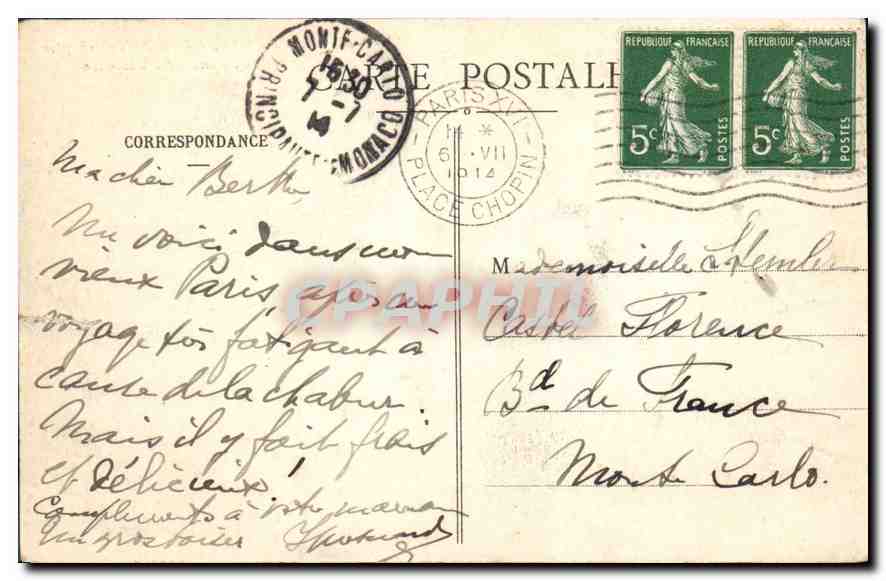 CARTE POSTALE
CORRESPONDANCE
MONTE-CARLO
16 30
7 - 7
14
PRINCIPAUTÉ DE MONACO
PARIS XVI
6 · VII
1914
PLACE CHOPIN
REPUBLIQUE FRANÇAISE
5c
POSTES
REPUBLIQUE FRANÇAISE
5c
POSTES
Ma chère Berthe
Me voici dans mon
vieux Paris après un
voyage très fatigant à
cause de la chaleur.
Mais il y fait frais
et délicieux!
Compliments à votre maman
Un gros baiser
Mademoiselle
Castel Florence
Bd de France
Monte Carlo.
CPAPHIL